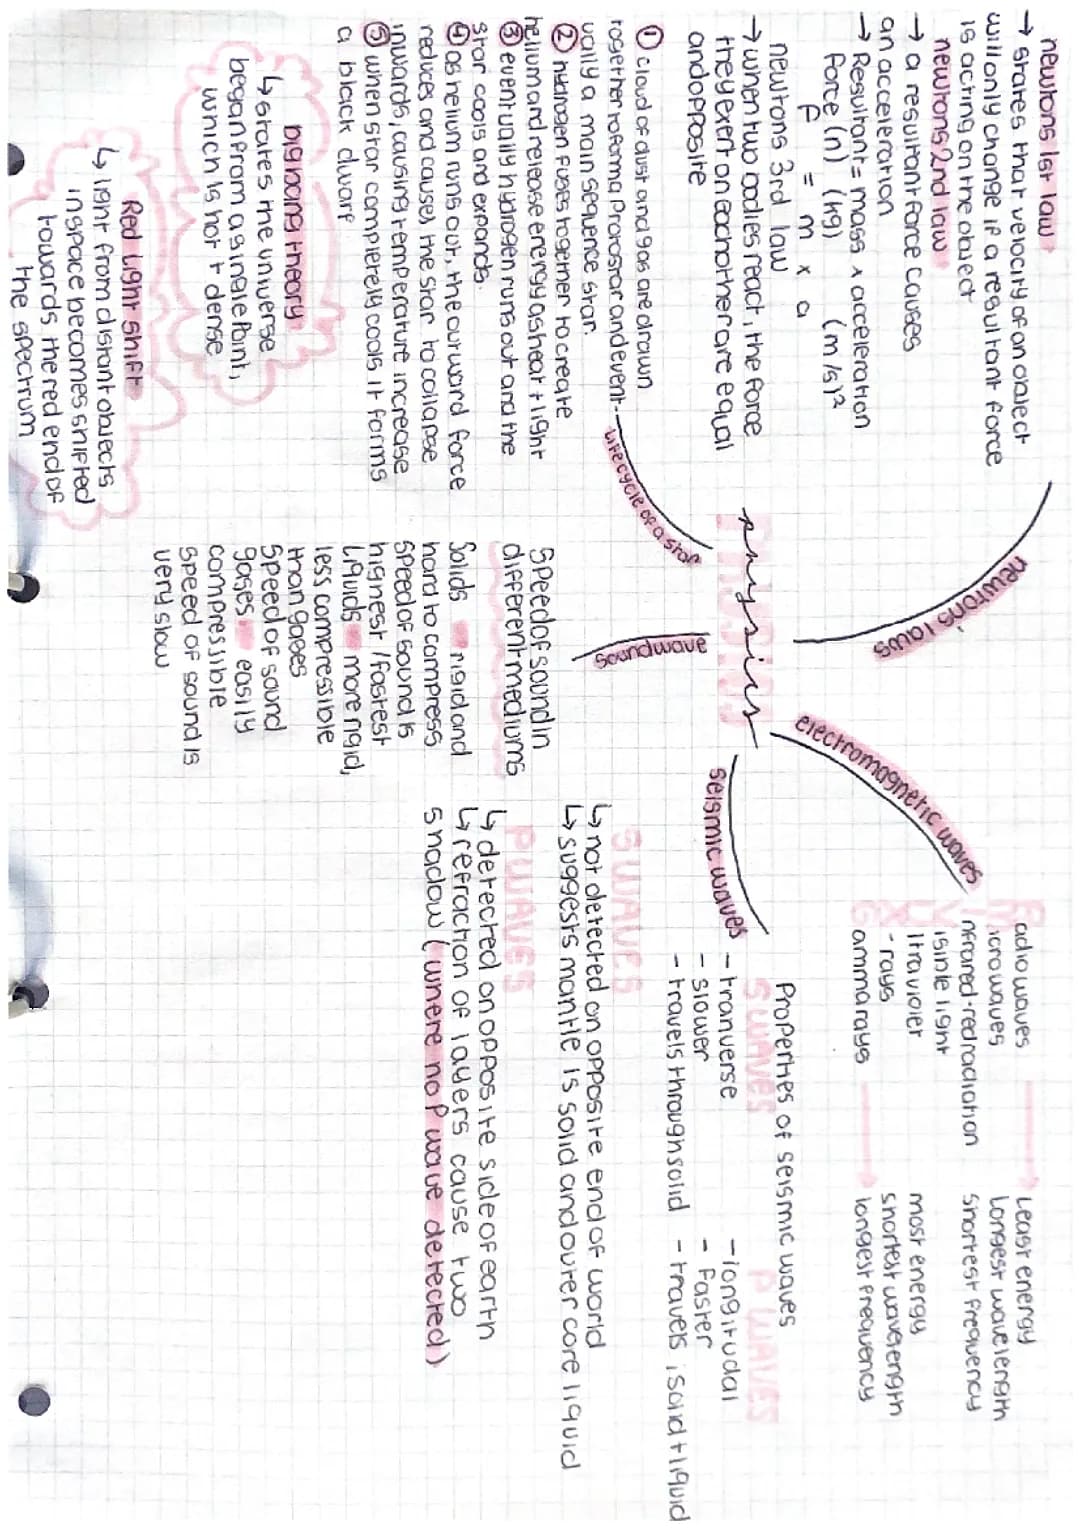 physics
newtons laws
newtons 1st law
→ states that velocity of an object
will only change if a resultant force
is acting on the object
newtons 2nd law
→ a resultant force causes
an acceleration
→ Resultant = mass x acceleration
force (n) (kg) (m/s)²
F = m x a
newtons 3rd law
→ when two bodies react, the force
they exert on eachother are equal
and opposite
electromagnetic waves
Radio waves → Least energy
Microwaves Longest wavelength
Infrared-red radiation shortest frequency
Visible light
Ultraviolet most energy
X - rays shortest wavelength
Gamma rays → longest frequency
lifecycle of a star
① cloud of dust and gas are drawn
together to form a Protostar and event-
ually a main sequence star.
② hydrogen fuses together to create
helium and release energy as heat + light
③ eventually hydrogen runs out and the
star cools and expands.
④ as helium runs out, the outward force
reduces and causes the star to collapse
inwards, causing temperature increase
⑤ when star completely cools it forms
a black dwarf
big bang theory
↳ states the universe
began from a single Point,
which is hot + dense
Red Light shift
↳ light from distant objects
in space becomes shifted
towards the red end of
the spectrum
Soundwave
Speed of sound in
different mediums
Solids rigid and
hard to compress
speed of sound is
highest / fastest
Liquids more rigid,
less compressible
than gases
Speed of sound
gases easily
compressible
speed of sound is
very slow
seismic waves
Properties of seismic waves
S WAVES P WAVES
- tranverse - longitudal
- slower - faster
- travels through solid - travels i solid + liquid
S WAVES
↳ not detected on opposite end of world
↳ suggests mantle is solid and outer core liquid
P WAVES
↳ detected on opposite side of earth
↳ refraction of layers cause two
shadow (where no P wave detected)